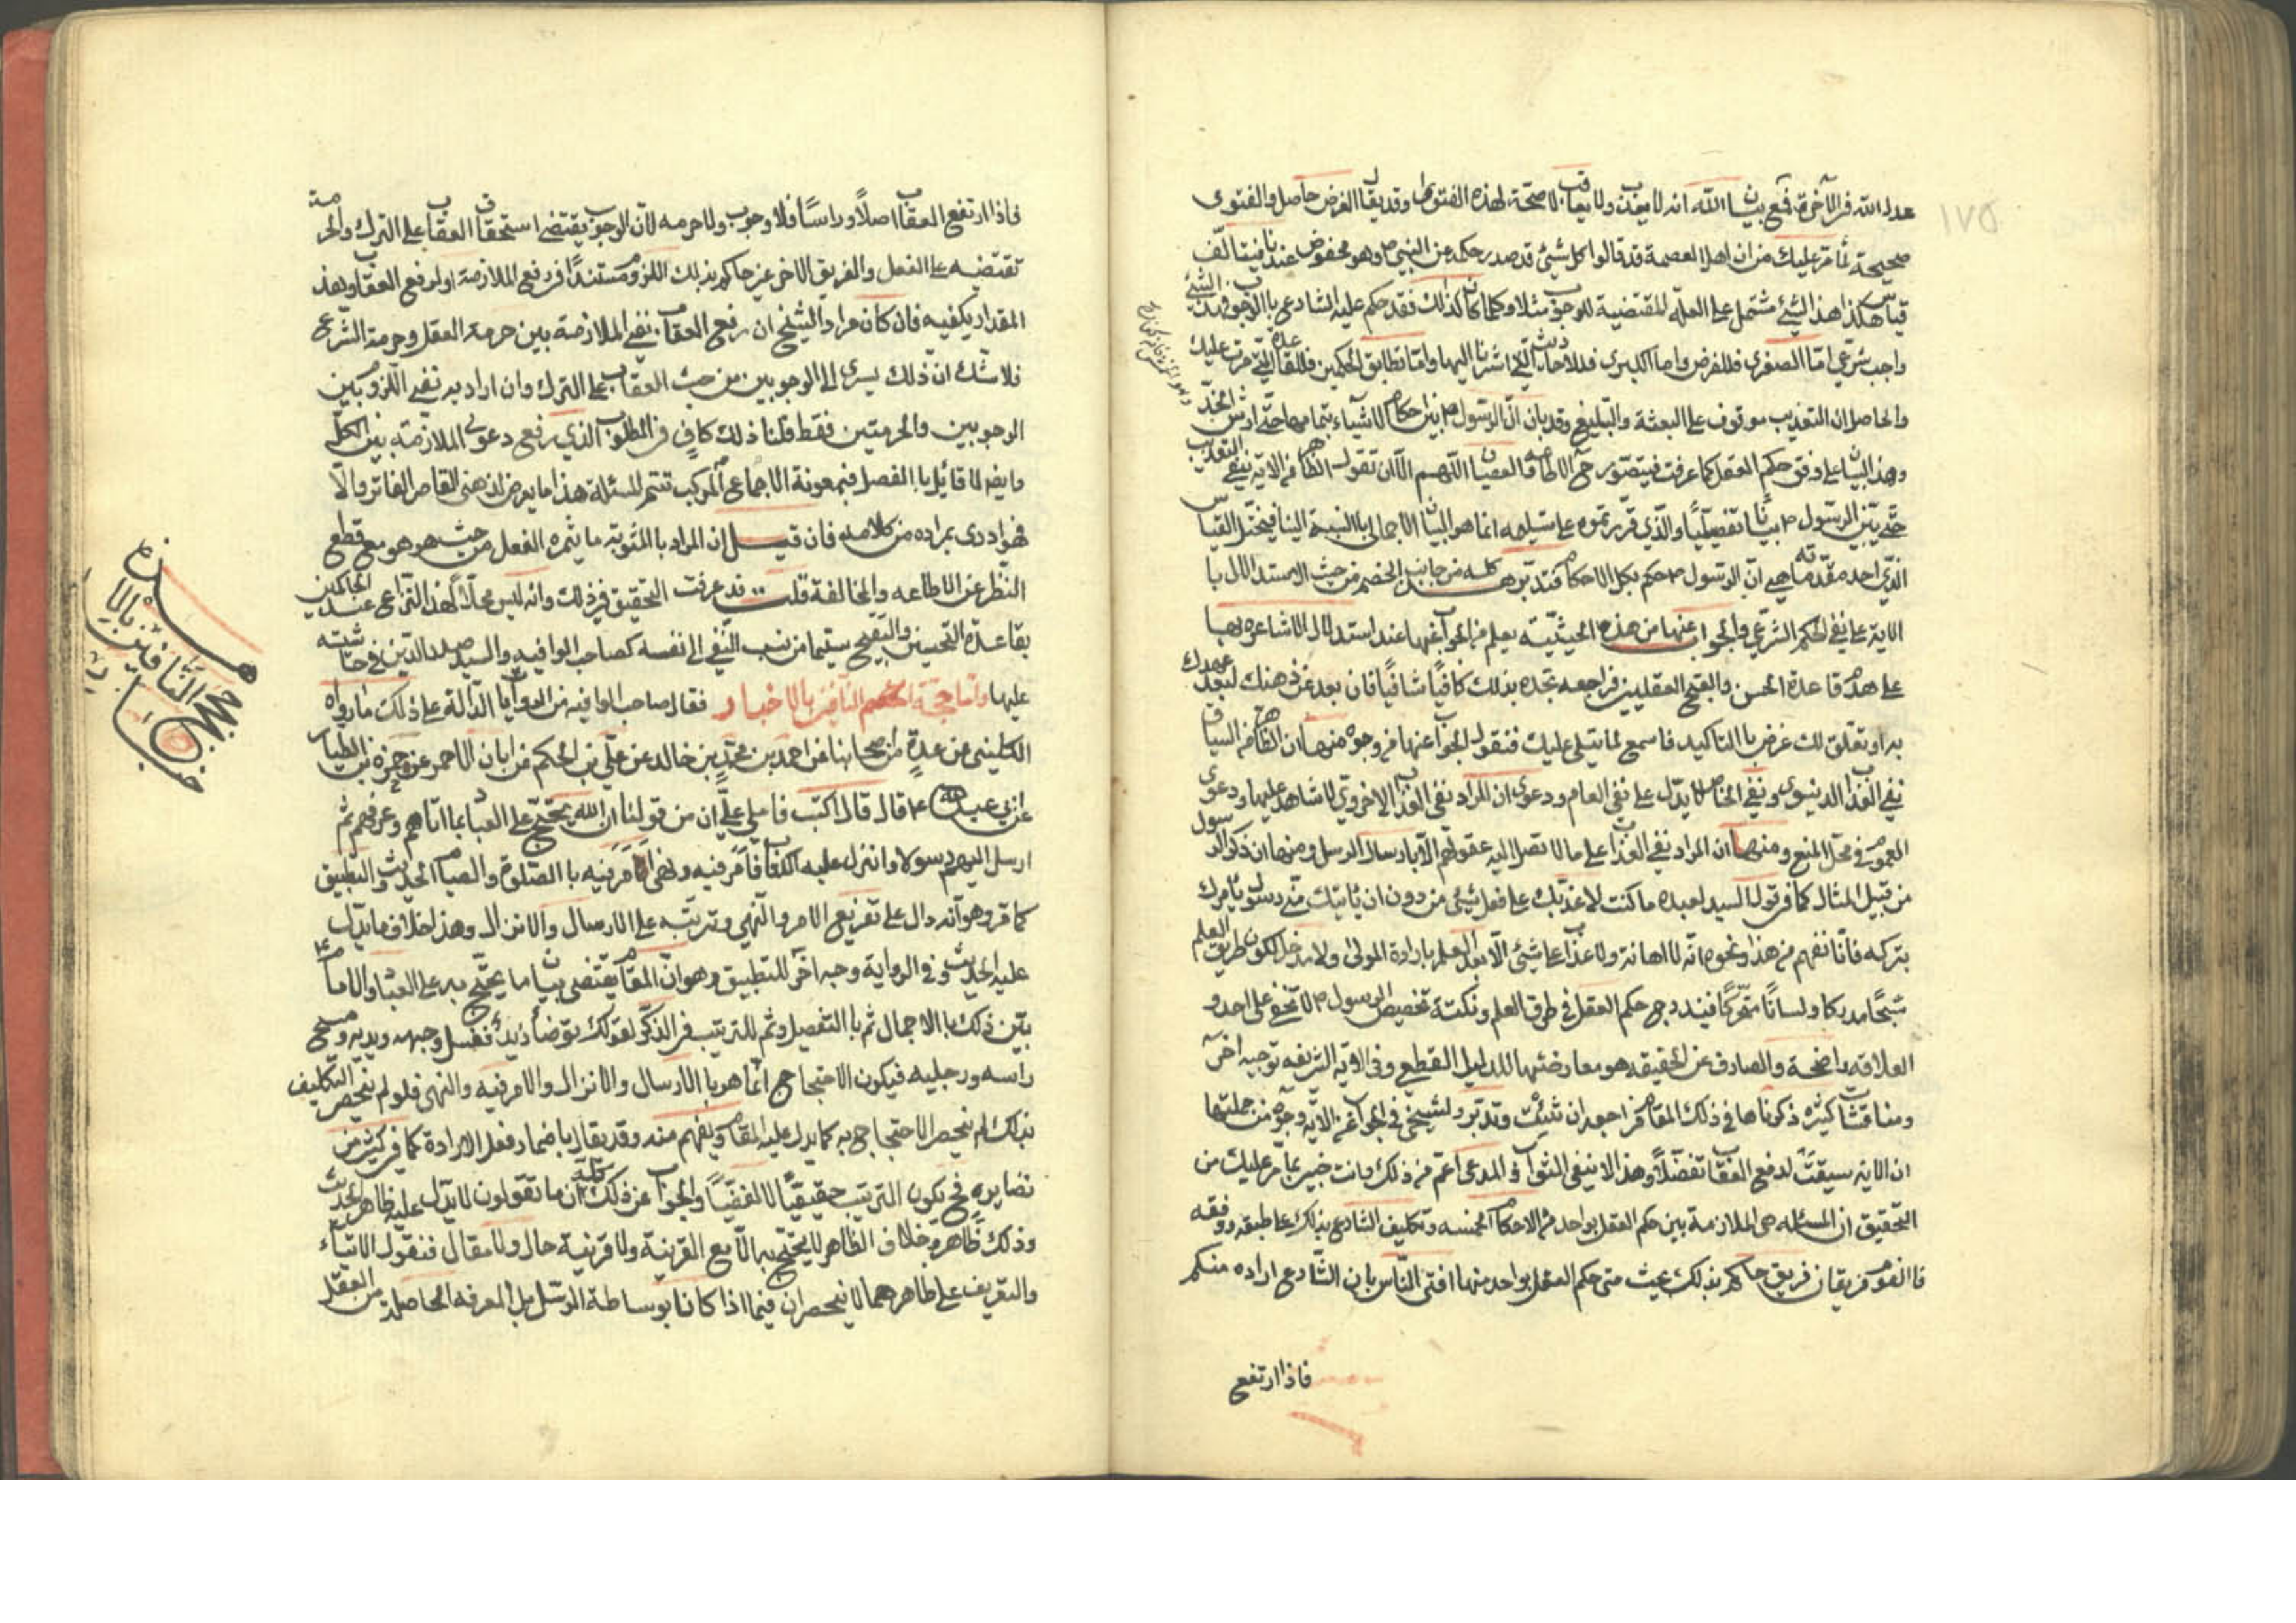 ١٧٥
عدل الله في الآخرة فمع بيان الله انه لا يعذب ولا يعاقب لا صحة لهذه الفتوى وقد يقال الغرض حاصل والفتوى
صحيحة لما مر عليك من ان اهل العصمة قد قالوا كل شيئ قد صدر حكمه عن النبي ص وهو محفوض عندنا فيتالف
قياس هكذا هذا الشيئ مشتمل على العلة المقتضية للوجوب مثلا وكلما كان كذلك فقد حكم عليه الشارع بالوجوب فهذا الشيئ
واجب شرعي اما الصغرى فللفرض واما الكبرى فللاحاديث التي اشرنا اليها واما تطابق الحكمين فللقاعدة التي مرت عليك
والحاصل ان التعذيب موقوف على البعثة والتبليغ وقد بان ان الرسول ص بين احكام الاشياء بتمامها حتى ارش الخدش
وهذا البيان على وفق حكم العقل كما عرفت فيتصور ح الاطاعة والعصيان اللهم الا ان تقول الظاهر من الاية نفي التعذيب
حتى يبين الرسول ص بيانا تفصيليا والذي قررتموه على تسليمه انما هو البيان الاجمالي بالنسبة الينا فيختل القياس
الذي احد مقدماته هي ان الرسول ص حكم بكل الاحكام فتدبر هذا كله من جانب الخصم من حيث الاستدلال با
الاية على نفي الحكم الشرعي والجواب عنها من هذه الحيثية يعلم من الجواب عنها عند استدلال الاشاعره بها
على هدم قاعدة الحسن والقبح العقليين فراجعه تجده بذلك كافيا شافيا فان بعد عن ذهنك لبعد عهدك
به او تعلق لك غرض بالتاكيد فاسمع لما يتلى عليك فنقول الجواب عنها من وجوه منها ان الظاهر من السياق
نفي العذاب الدنيوى ونفي الخاص لا يدل على نفي العام ودعوى ان المراد نفي العذاب الاخروي لا شاهد عليها ودعوى
العموم في محل المنع ومنها ان المراد نفي العذاب على ما لا تصل اليه عقولهم الا بارسال الرسل ومنها ان ذكر الرسول
من قبيل المثال كما في قول السيد لعبده ما كنت لاعذبك على فعل شيئ من دون ان ياتيك مني رسول يامرك
بتركه فانا نفهم من هذا ونحوه انه لا اهانة ولا عذاب على شيئ الا بعد العلم بارادة المولى ولا مدخل لكون طريق العلم
شبحا مدركا ولسانا متحركا فيندرج حكم العقل في طرق العلم ونكتة تخصيص الرسول ص لا تخفى على احد و
العلاقه واضحة والصارف عن الحقيقه هو معارضتها للدليل القطعي وفي الاية الشريفه توجيه اخر
ومناقشات كثيره ذكرناها في ذلك المقام فراجعه ان شئت وتدبر ولشيخي في الجواب عن الاية وجوه من جملتها
ان الاية سيقت لدفع العقاب تفضلا وهذا لا ينفي الثواب والمدعى اعم من ذلك وانت خبير بما مر عليك من
التحقيق ان المسئله هي الملازمة بين حكم العقل بواحد من الاحكام الخمسه وتكليف الشارع بذلك على طبقه ووفقه
فالقوم فريقان فريق حاكم بذلك بحيث متى حكم العقل بواحد منها افتى الناس بان الشارع اراده منكم
فاذا ارتفع
فاذا ارتفع العقاب اصلا وراسا فلا وجوب ولا حرمه لان الوجوب يقتضي استحقاق العقاب على الترك والحرمة
تقتضيه على الفعل والفريق الاخر غير حاكم بذلك اللزوم مستندا في رفع الملازمة اولا لرفع العقاب وهذ
المقدار يكفيه فان كان مراد الشيخ ان رفع العقاب نفي الملازمة بين حرمة العقل وحرمة الشرع
فلا شك ان ذلك يسري الى الوجوبين من حيث العقاب على الترك وان اراد به نفي اللزوم بين
الوجوبين والحرمتين فقط قلنا ذلك كاف في المطلوب الذي رفع دعوى الملازمة بين الكل
وايضا لا قائل بالفصل فبمعونة الاجماع المركب تتم المسئلة هذا ما يعرض لذهني القاصر الفاتر والا
فهو ادرى بمراده من كلامه فان قيل ان المراد بالمثوبة ما يثمره الفعل من حيث هو هو مع قطع
النظر عن الاطاعه والمخالفة قلت قد عرفت التحقيق في ذلك وانه ليس محلا لهذا النزاع عند الحاكمين
بقاعدة التحسين والتقبيح سيما من نسب النفي الى نفسه كصاحب الوافيه والسيد صدر الدين في حاشيته
عليها واما حجة الخصم النافين بالاخبار فقال صاحب الوافيه من الروايات الدالة على ذلك ما رواه
الكليني عن عدة من اصحابنا عن احمد بن محمد بن خالد عن علي بن الحكم عن ابان الاحمر عن حمزه بن الطيار
عن ابي عبد الله ع قال قال اكتب فاملى علي ان من قولنا ان الله يحتج على العباد بما اتاهم وعرفهم ثم
ارسل اليهم رسولا وانزل عليه الكتاب فامر فيه ونهى امر فيه بالصلوة والصيام الحديث والتطبيق
كما مر وهو انه دال على تفريع الامر والنهي وترتبه على الارسال والانزال وهذا خلاف ما يدل
عليه الحديث وفي الرواية وجه اخر للتطبيق وهو ان المقام يقتضي بيان ما يحتج به على العباد والامام ع
بين ذلك بالاجمال ثم بالتفصيل وثم للترتيب في الذكر كقولك توضأ زيد فغسل وجهه ويديه ومسح
راسه ورجليه فيكون الاحتجاج انما هو بالارسال والانزال والامر فيه والنهي فلو لم ينحصر التكليف
بذلك لم ينحصر الاحتجاج به كما يدل عليه المقام ويفهم منه وقد يقال باضمار فعل الارادة كما في كثير من
نضايره فح يكون الترتيب حقيقيا لا لفظيا والجواب عن ذلك كله ان ما تقولون لا يدل عليه ظاهر الحديث
وذلك ظاهر وخلاف الظاهر لا يحتج به الا مع القرينة ولا قرينة حال ولا مقال فنقول الاتياء
والتعريف على ظاهرهما لا ينحصران فيما اذا كانا بوساطة الرسل بل المعرفه الحاصلة من العقل
حجج النافين بالاخبار